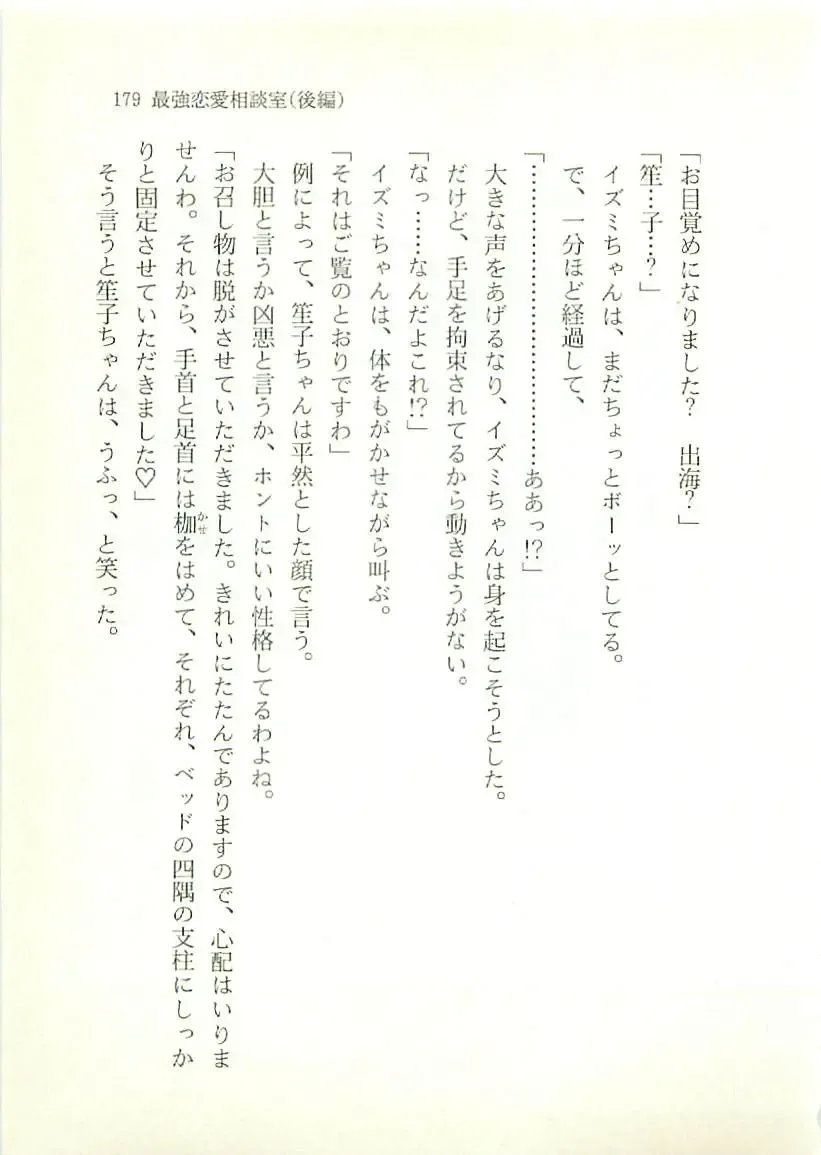 179 最強恋愛相談室(後編)
「お目覚めになりました?　出海?」
「笙…子…?」
　イズミちゃんは、まだちょっとボーッとしてる。
　で、一分ほど経過して、
「…………………………………ああっ!?」
　大きな声をあげるなり、イズミちゃんは身を起こそうとした。
　だけど、手足を拘束されてるから動きようがない。
「なっ……なんだよこれ!?」
　イズミちゃんは、体をもがかせながら叫ぶ。
「それはご覧のとおりですわ」
　例によって、笙子ちゃんは平然とした顔で言う。
　大胆と言うか凶悪と言うか、ホントにいい性格してるわよね。
「お召し物は脱がさせていただきました。きれいにたたんでありますので、心配はいりま
せんわ。それから、手首と足首には枷かせをはめて、それぞれ、ベッドの四隅の支柱にしっか
りと固定させていただきました♡」
　そう言うと笙子ちゃんは、うふっ、と笑った。